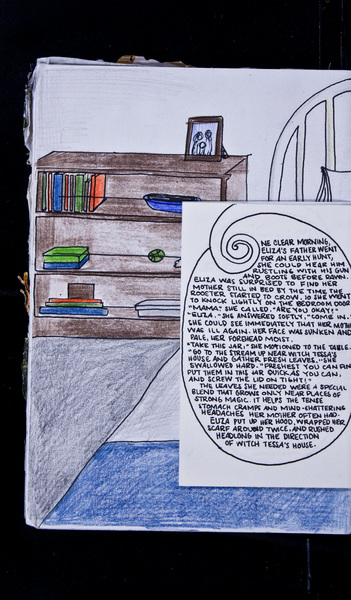 NE CLEAR MORNING,
ELIZA'S FATHER WENT
FOR AN EARLY HUNT,
SHE COULD HEAR HIM
RUSTLING WITH HIS GUN
AND BOOTS BEFORE DAWN.
ELIZA WAS SURPRISED TO FIND HER
MOTHER STILL IN BED BY THE TIME THE
ROOSTER STARTED TO CROW. SO SHE WENT
TO KNOCK LIGHTLY ON THE BEDROOM DOOR
"MAMA?" SHE CALLED. "ARE YOU OKAY?"
"ELIZA." SHE ANSWERED SOFTLY. "COME IN."
SHE COULD SEE IMMEDIATELY THAT HER MOTH
WAS ILL AGAIN. HER FACE WAS SUNKEN AND
PALE, HER FOREHEAD MOIST.
"TAKE THIS JAR," SHE MOTIONED TO THE TABLE.
"GO TO THE STREAM UP NEAR WITCH TESSA'S
HOUSE AND GATHER FRESH LEAVES." SHE
SWALLOWED HARD. "FRESHEST YOU CAN FIN
PUT THEM IN THIS JAR QUICK AS YOU CAN,
AND SCREW THE LID ON TIGHT!"
THE LEAVES SHE NEEDED WERE A SPECIAL
BLEND THAT GROWS ONLY NEAR PLACES OF
STRONG MAGIC. IT HELPS THE TENSE
STOMACH CRAMPS AND MIND-SHATTERING
HEADACHES HER MOTHER OFTEN HAD.
ELIZA PUT UP HER HOOD, WRAPPED HER
SCARF AROUND TWICE, AND RUSHED
HEADLONG IN THE DIRECTION
OF WITCH TESSA'S HOUSE.